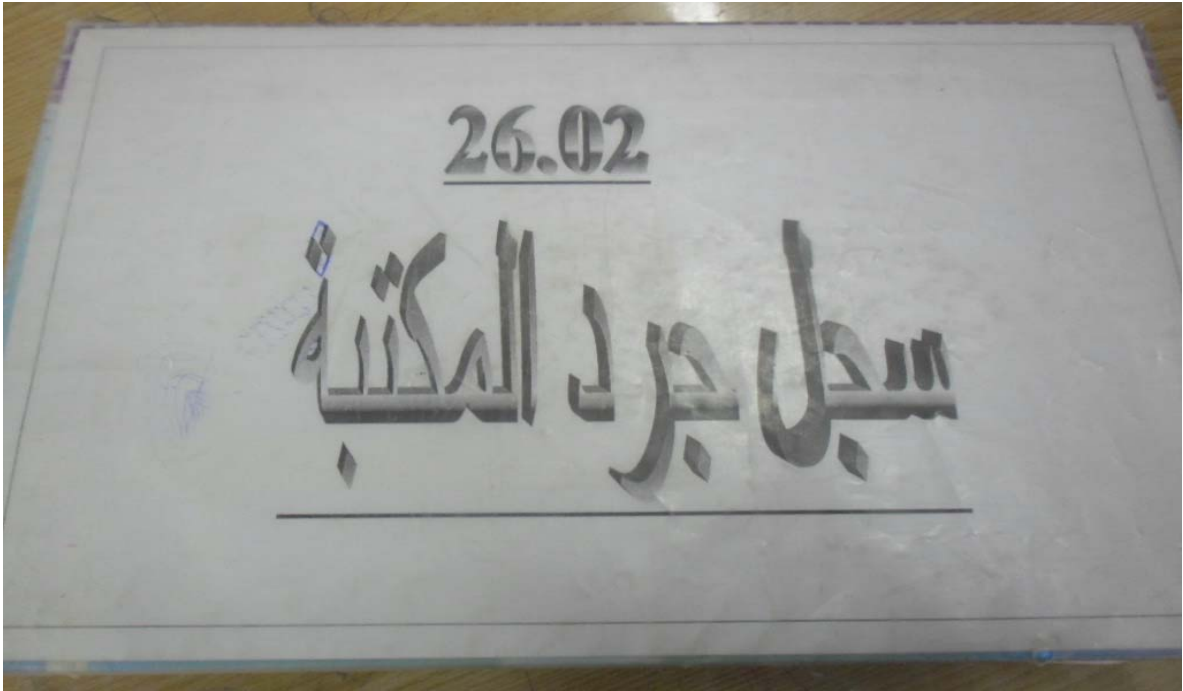 26.02
سجل جرد المكتبة